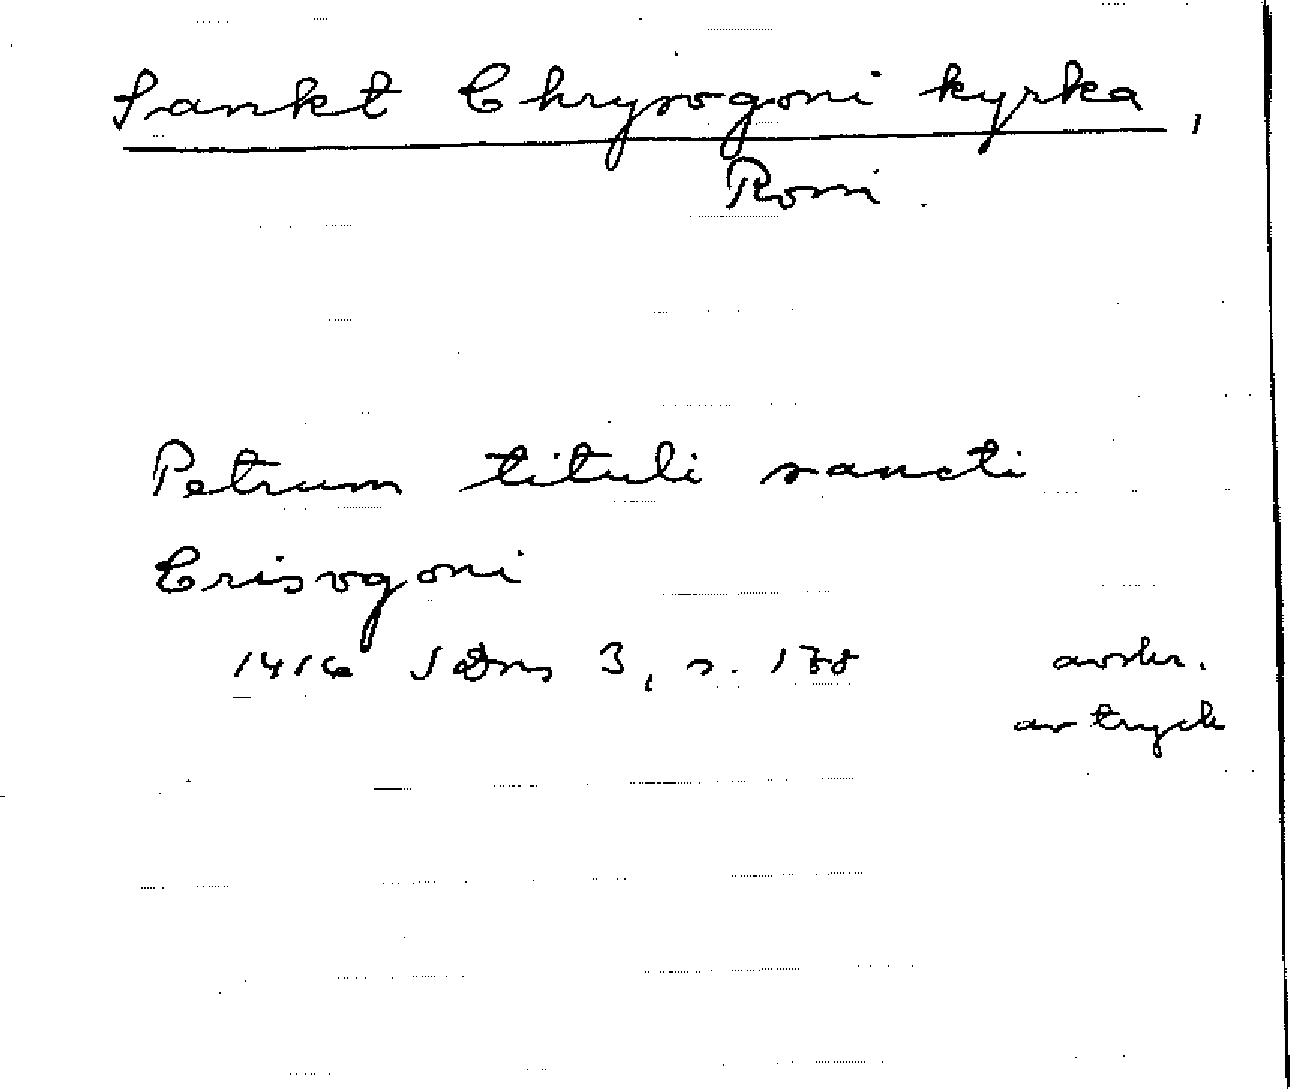 Sankt Chrysogoni kyrka,
Rom.
Petrum tituli sancti
Crisogoni
1416 SDns 3, s. 178 avskr.
av tryck